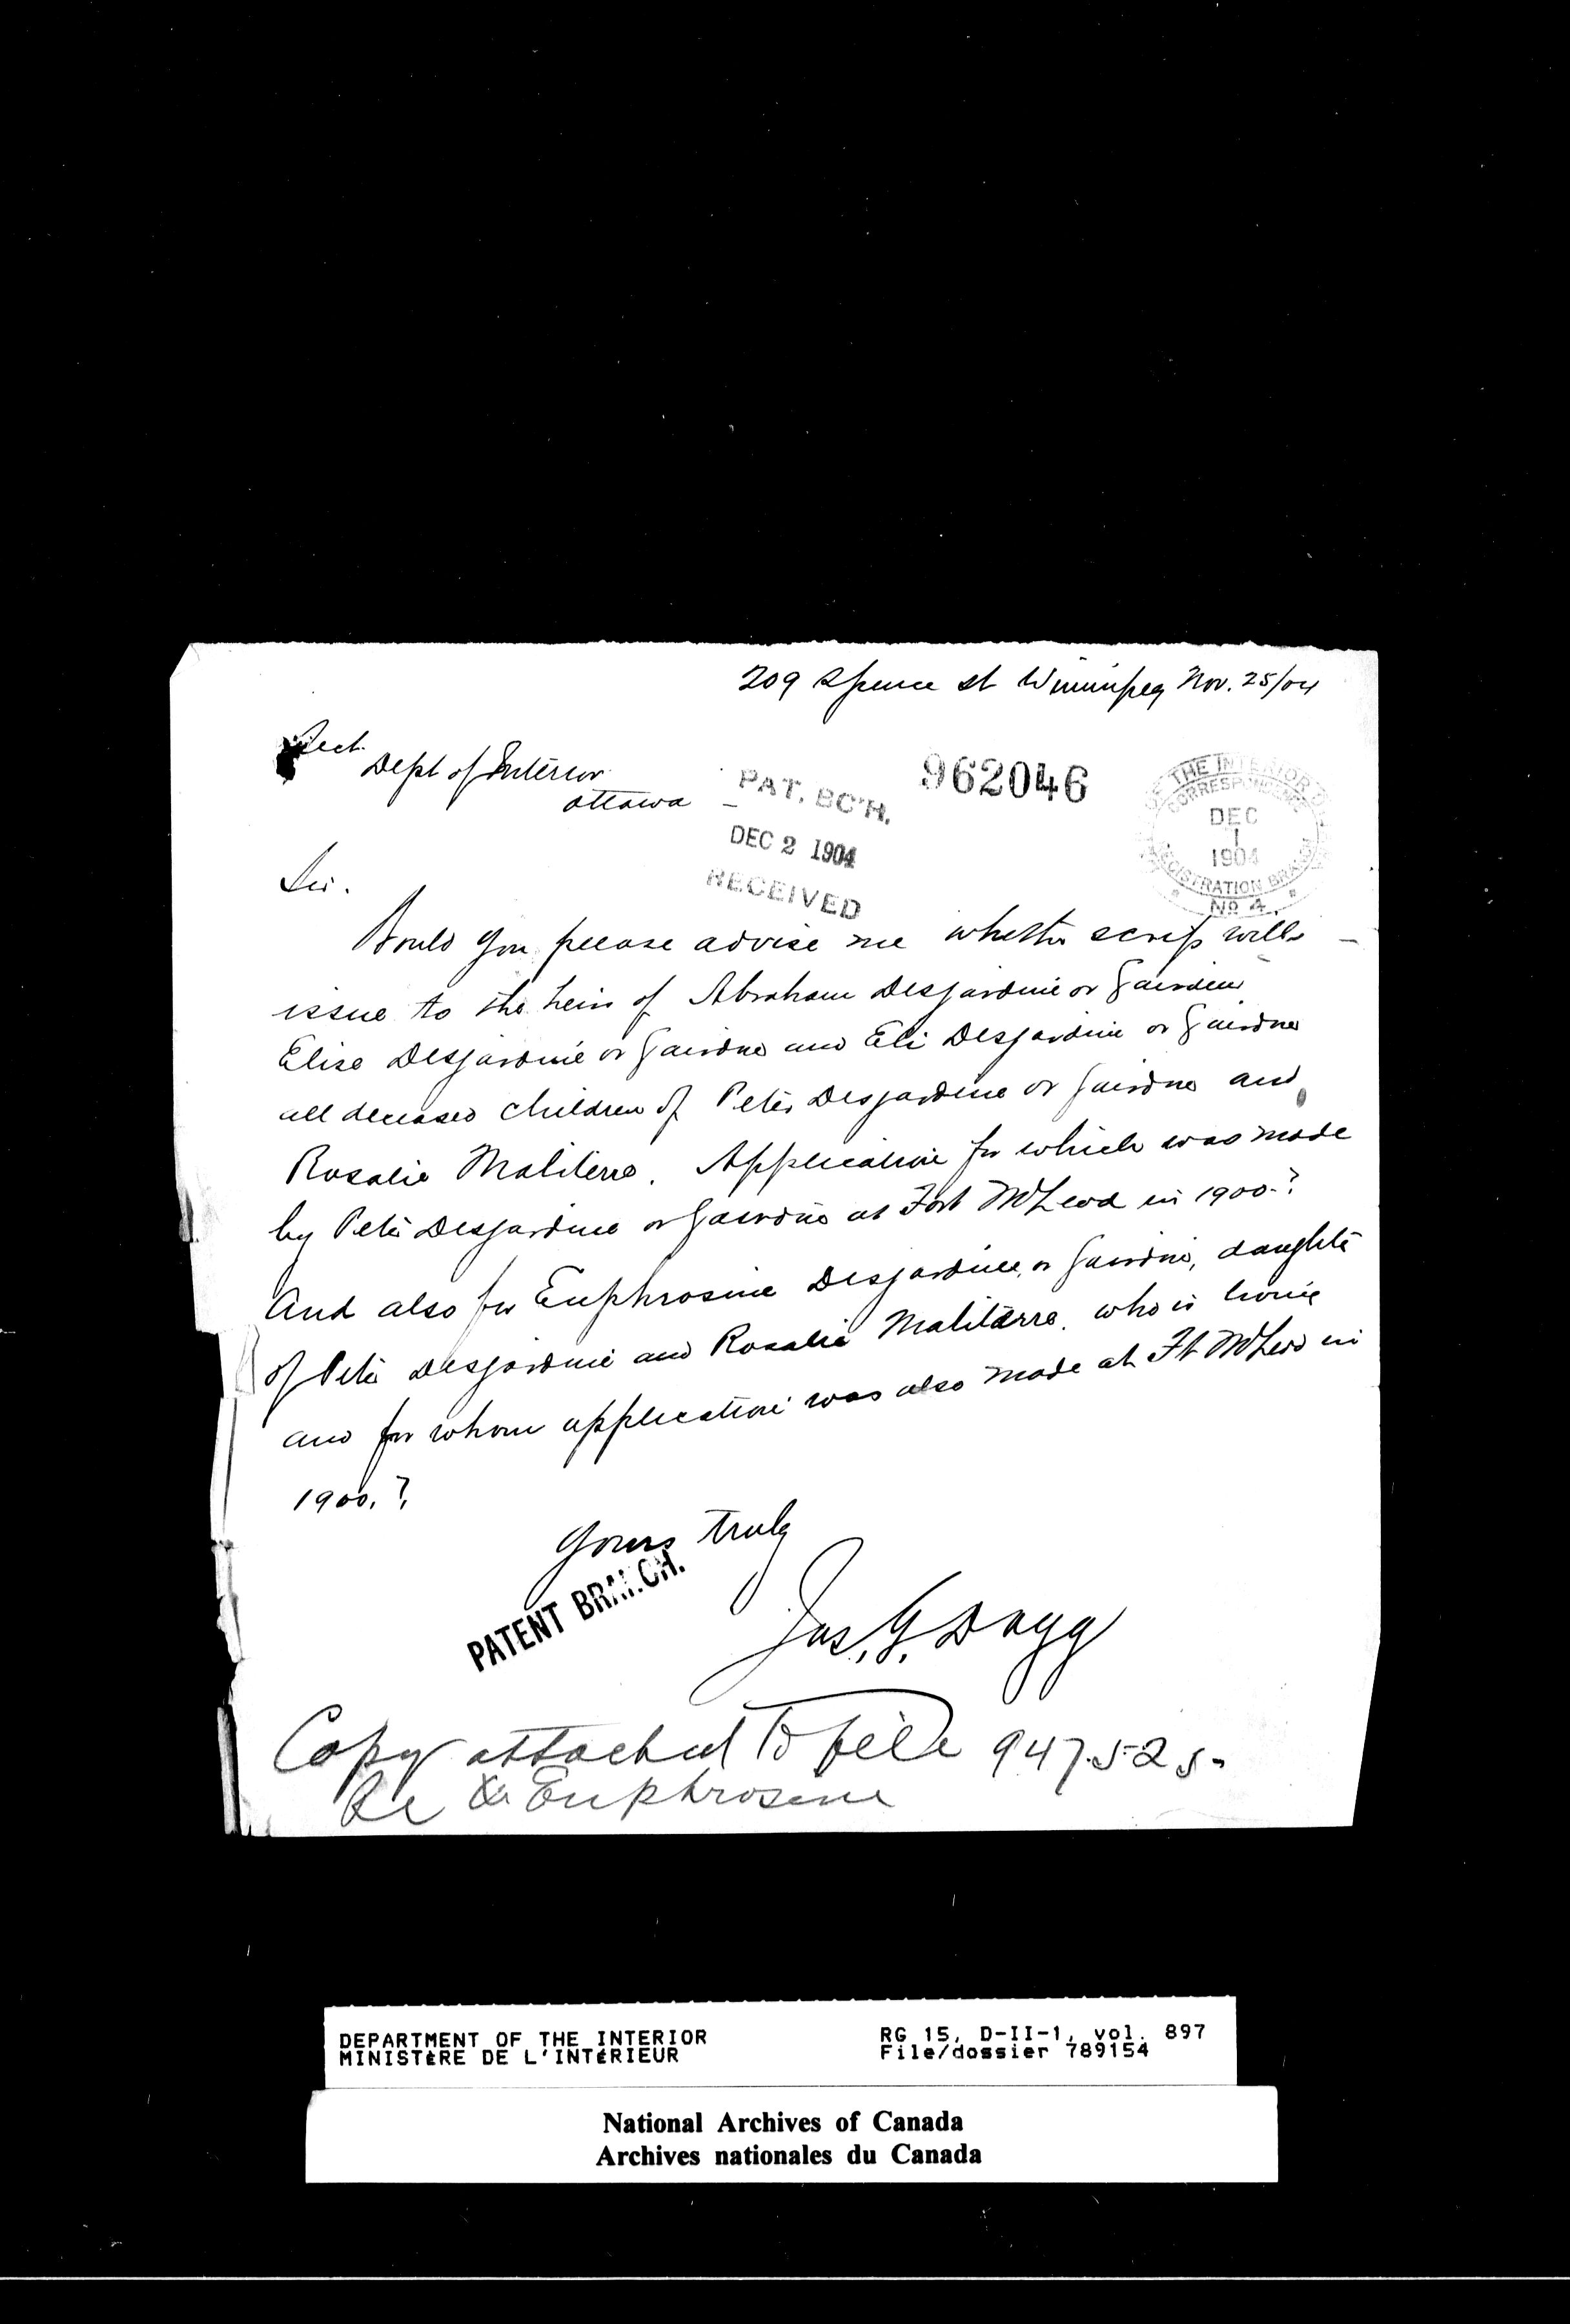 209 Spence st Winnipeg Nov. 25/04
Sect.
Dept of Interior
Ottawa
962046
PAT. BC'H.
DEC 2 1904
RECEIVED
THE INTERIOR
CORRESPONDENCE
DEC
1
1904
REGISTRATION BRANCH
No 4
Sir.
Would you please advise me whether scrip will
issue to the heirs of Abraham Desjardine or Jairdine
Elise Desjardine or Jairdine and Eli Desjardine or Jairdine
all deceased children of Peter Desjardine or Jairdine and
Rosalie Maliterre. Application for which was made
by Peter Desjardine or Jairdine at Fort McLeod in 1900.?
And also for Euphrosine Desjardine, or Jairdine, daughter
of Peter Desjardine and Rosalie Maliterre. who is living
and for whom application was also made at Ft McLeod in
1900.?
Yours truly
PATENT BRANCH.
Jas. G. Dagg
Copy attached to file 947525-
Re Euphrosine
DEPARTMENT OF THE INTERIOR
MINISTÈRE DE L'INTÉRIEUR
RG 15, D-II-1, vol. 897
File/dossier 789154
National Archives of Canada
Archives nationales du Canada